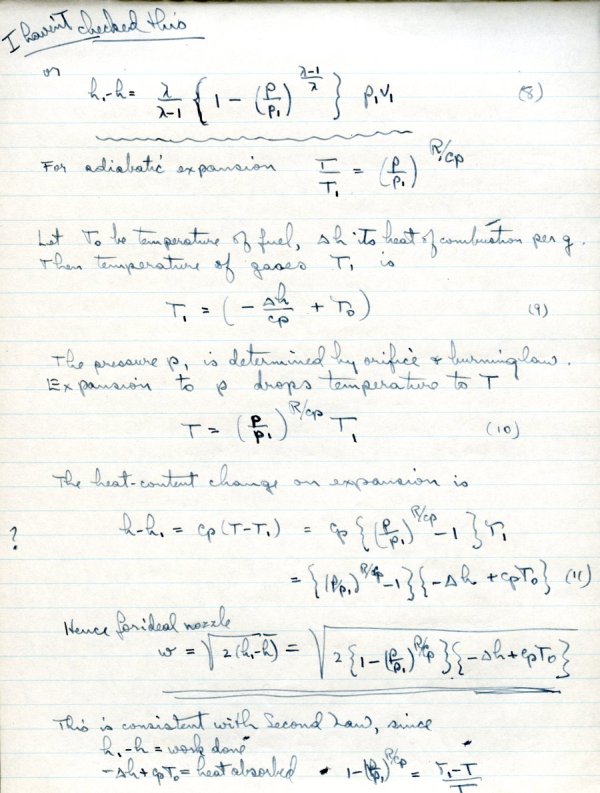 I haven't checked this
or
h₁-h = λ/(λ-1) { 1 - (p/p₁)^((λ-1)/λ) } p₁v₁ (8)
For adiabatic expansion T/T₁ = (p/p₁)^(R/cp)
Let T₀ be temperature of fuel, Δh its heat of combustion per g.
Then temperature of gases T₁ is
T₁ = ( - Δh/cp + T₀ ) (9)
The pressure p₁ is determined by orifice & burning law.
Expansion to p drops temperature to T
T = (p/p₁)^(R/cp) T₁ (10)
The heat-content change on expansion is
? h-h₁ = cp (T-T₁) = cp { (p/p₁)^(R/cp) - 1 } T₁
= { (p/p₁)^(R/cp) - 1 } { -Δh + cpT₀ } (11)
Hence for ideal nozzle
w = √(2(h₁-h)) = √(2 { 1 - (p/p₁)^(R/cp) } { -Δh + cpT₀ })
This is consistent with Second Law, since
h₁-h = work done
-Δh + cpT₀ = heat absorbed 1-(p/p₁)^(R/cp) = (T₁-T)/T